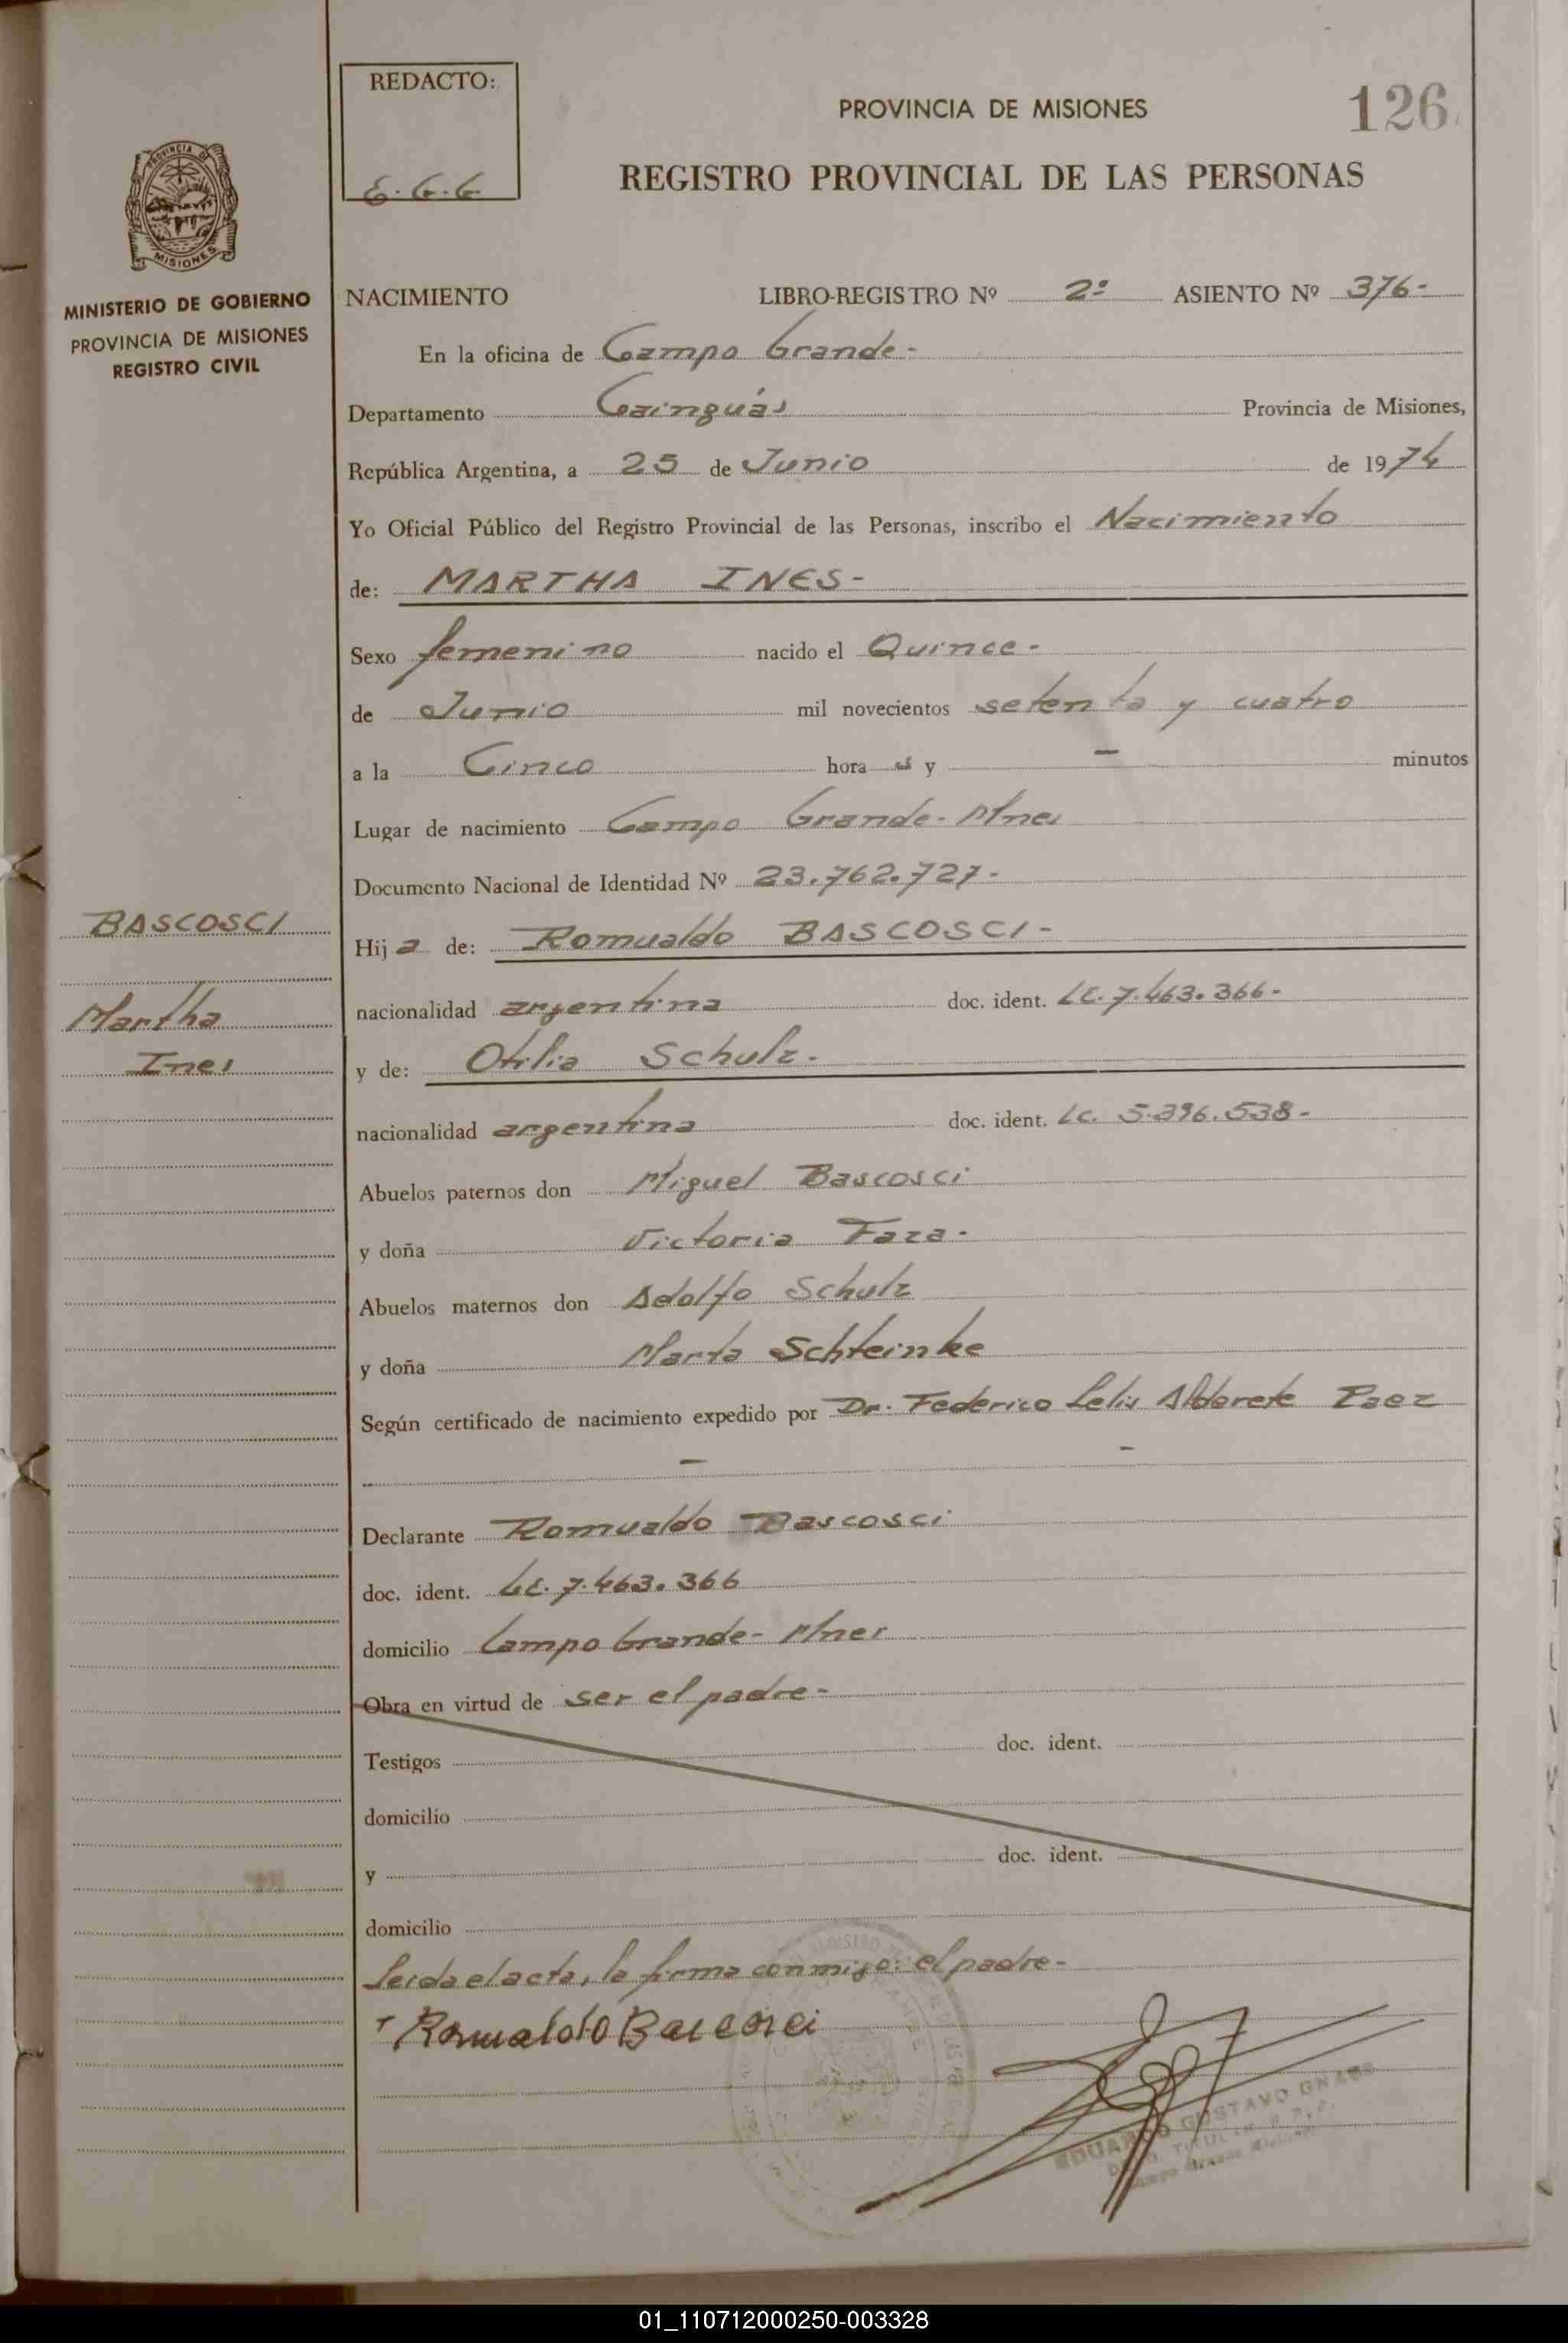 126
REDACTO:
E.G.G
PROVINCIA DE MISIONES
REGISTRO PROVINCIAL DE LAS PERSONAS
PROVINCIA DE
MISIONES
MINISTERIO DE GOBIERNO
PROVINCIA DE MISIONES
REGISTRO CIVIL
NACIMIENTO LIBRO-REGISTRO Nº 2º ASIENTO Nº 376-
En la oficina de Campo Grande-
Departamento Cainguás Provincia de Misiones,
República Argentina, a 25 de Junio de 1974
Yo Oficial Público del Registro Provincial de las Personas, inscribo el Nacimiento
de: MARTHA INES-
Sexo femenino nacido el Quince-
de Junio mil novecientos setenta y cuatro
a la Cinco hora s y - minutos
Lugar de nacimiento Campo Grande- Mnes
Documento Nacional de Identidad Nº 23.762.727-
BASCOSCI
Martha
Ines
Hija de: Romualdo BASCOSCI-
nacionalidad argentina doc. ident. LE. 7.463.366-
y de: Otilia Schulz.
nacionalidad argentina doc. ident. LC. 5.396.538-
Abuelos paternos don Miguel Bascosci
y doña Victoria Faza-
Abuelos maternos don Adolfo Schulz
y doña Marta Schteinke
Según certificado de nacimiento expedido por Dr. Federico Lelis Alderete Paez
- -
Declarante Romualdo Bascosci
doc. ident. LE. 7.463.366
domicilio Campo Grande- Mnes
Obra en virtud de ser el padre-
Testigos doc. ident.
domicilio
y doc. ident.
domicilio
Leida el acta, la firma conmigo: el padre-
Romualdo Bascosci
EDUARDO GUSTAVO
Campo Grande
01_110712000250-003328